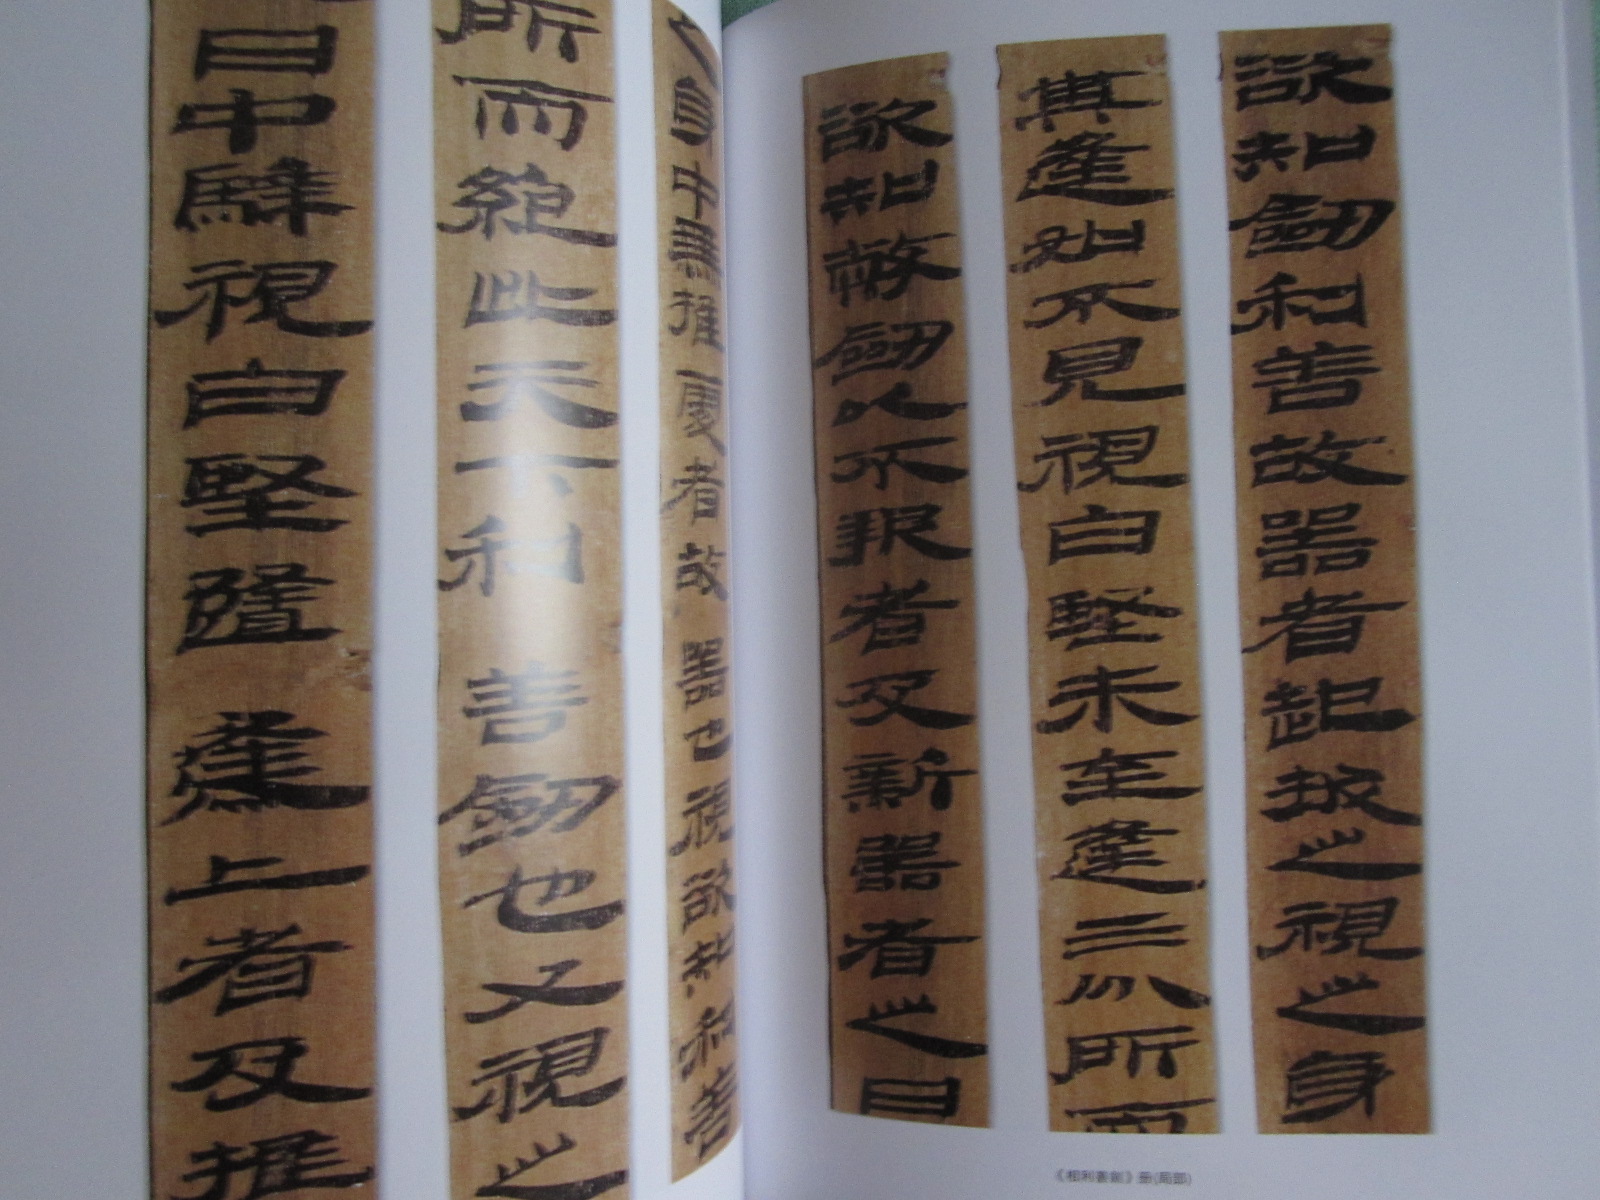 欲知劍利善故器者起拔之視之身
其逢如不見視白堅未至逢三分所而
欲知幣劍以不報者及新器者之日
之身中無推處者故器也視欲知利善
所而絕此天下利善劍也又視之
日中騂視白堅隨逢上者及推
《相利善劍》册(局部)